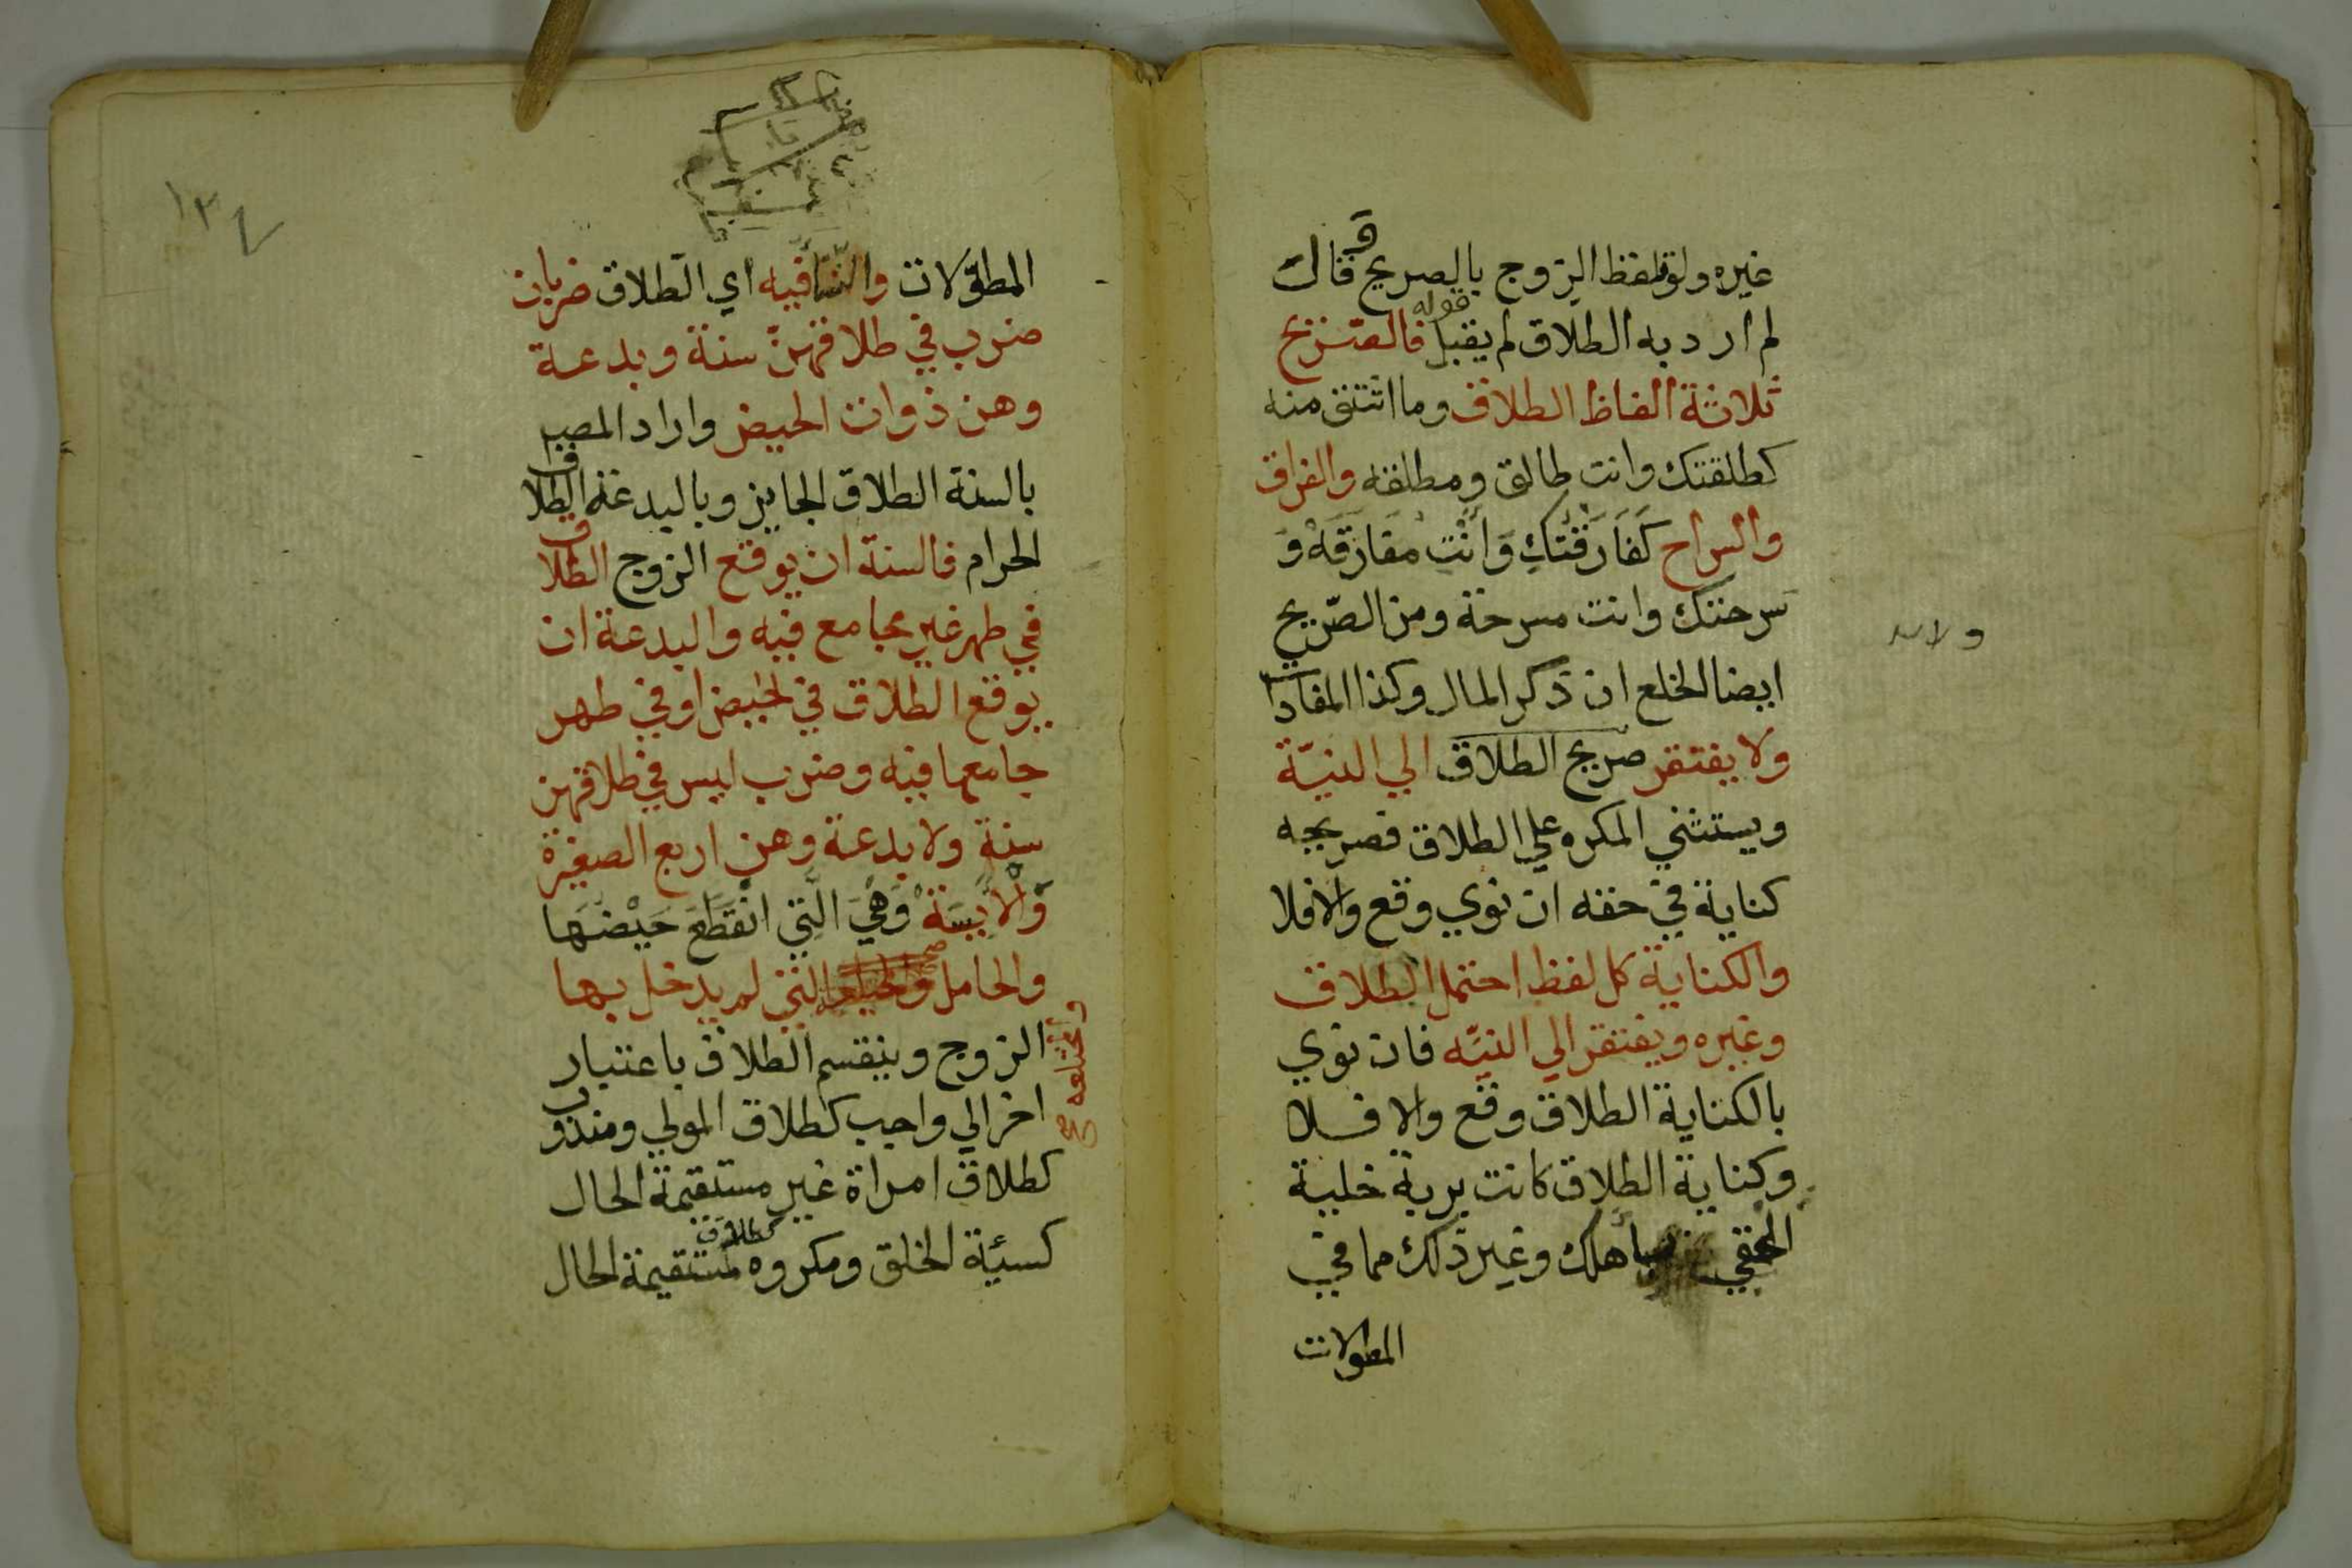 غيره ولو تلفظ الزوج بالصريح وقال
لم ارد به الطلاق لم يقبل قوله فالصريح
ثلاثة الفاظ الطلاق وما اشتق منه
كطلقتك وانت طالق ومطلقه والفراق
والسراح كَفَارَقْتُكِ وَاَنْتِ مفارقَهْ وَ
سرحتك وانت مسرحة ومن الصّريح
ايضا الخلع ان ذكر المال وكذا المفادات
ولا يفتقر صريح الطلاق الي النيّة
ويستثني المكره علي الطلاق فصريحه
كناية في حقه ان نوي وقع والا فلا
والكناية كل لفظ احتمل الطلاق
وغيره ويفتقر الي النيّه فان نوي
بالكناية الطلاق وقع والا فلا
وكناية الطلاق كانت برية خلية
الحقي باهلك وغير ذلك مما في
المطولات
١٣٧
المطوّلات والنسا فيه اي الطلاق ضربان
ضرب في طلاقهنّ سنة وبدعة
وهن ذوات الحيض واراد المصنف
بالسنة الطلاق الجايز وبالبدعة الطلاق
الحرام فالسنة ان يوقع الزوج الطلاق
في طهر غير مجامع فيه والبدعة ان
يوقع الطلاق في الحيض او في طهر
جامعها فيه وضرب ليس في طلاقهن
سنة ولا بدعة وهن اربع الصغيرة
وَالْاَيِسَةْ وَهْيَ الَّتِي انْقَطَعَ حَيْضُهَا
والحامل والتي لم يدخل بها
والمختلعه صح
الزوج وينقسم الطلاق باعتبار
اخر الي واجب كطلاق المولي ومندوب
كطلاق امراة غير مستقيمة الحال
كسيئة الخلق ومكروه كطلاق مستقيمة الحال